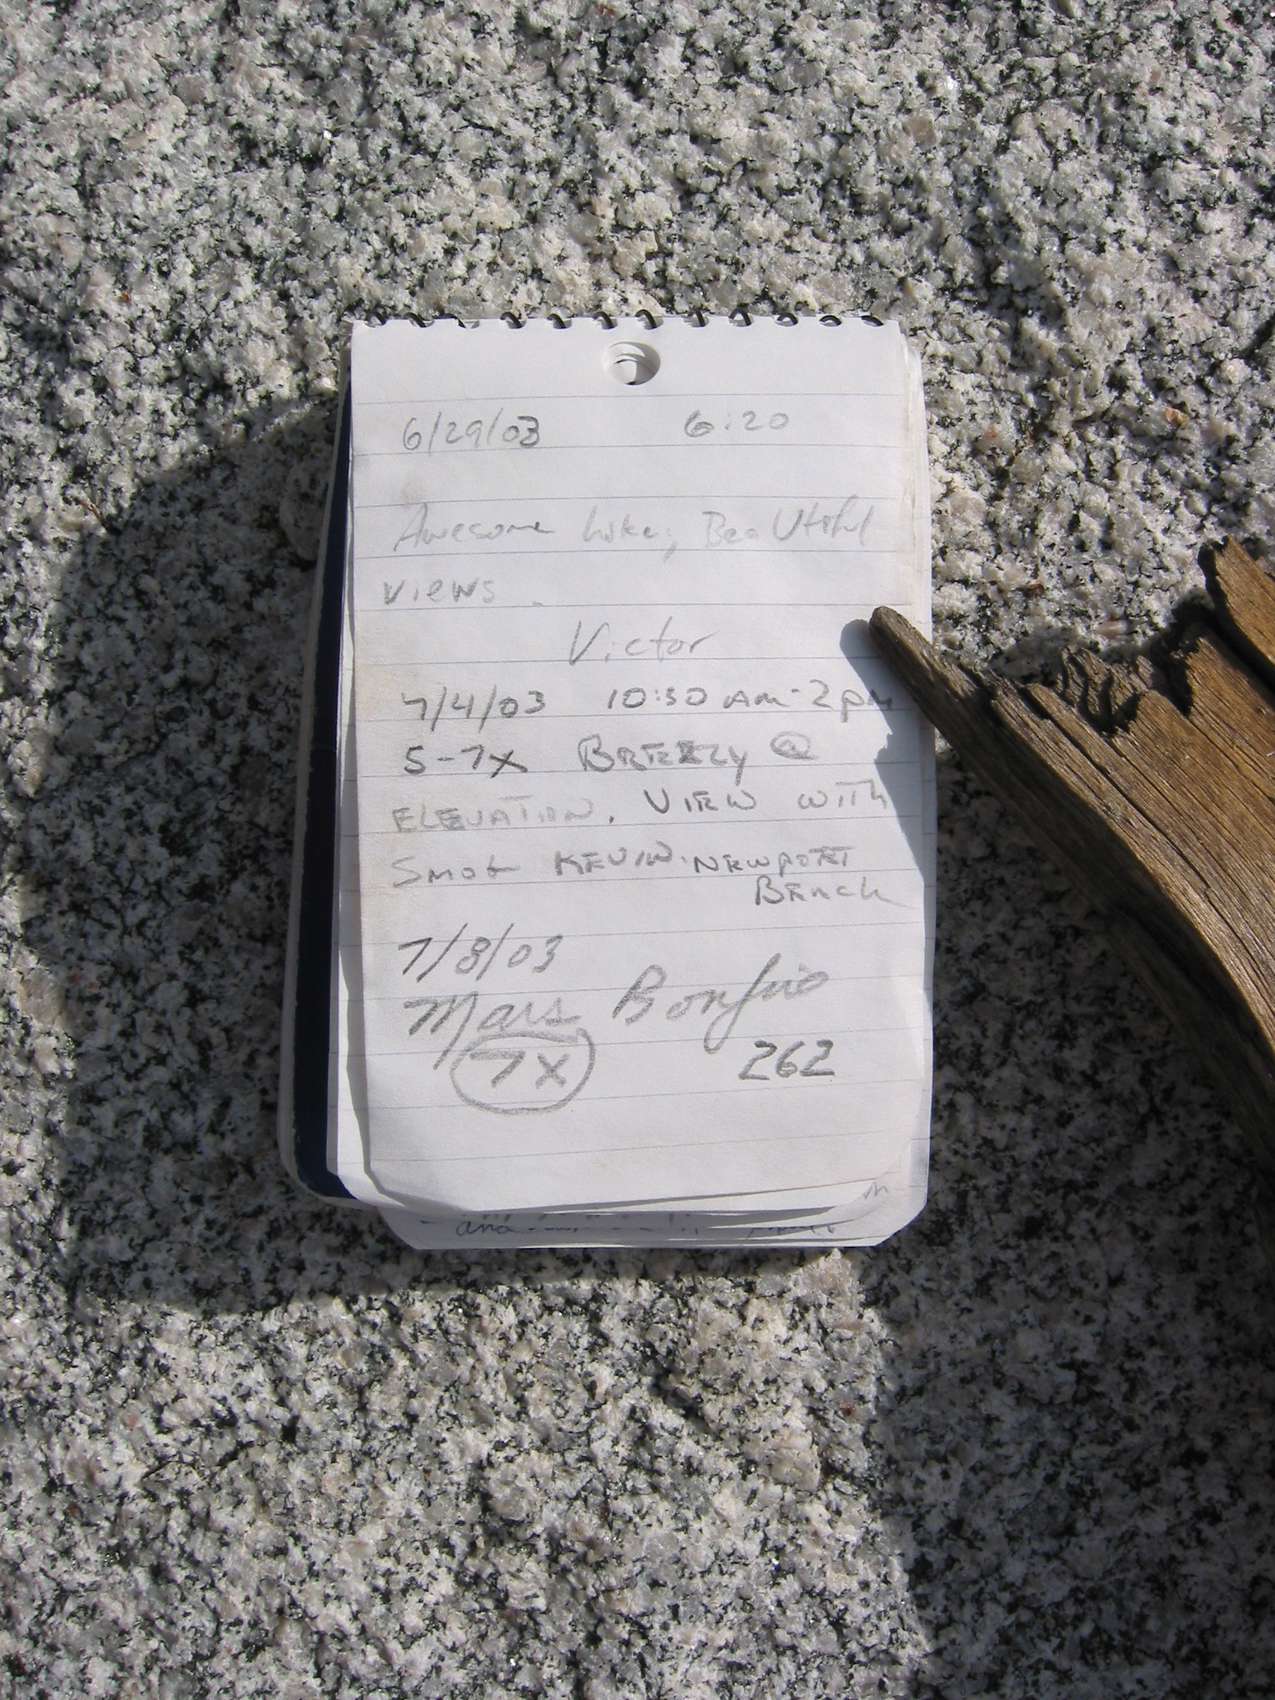 6/29/03 6:20
Awesome hike, Beautiful
views.
Victor
7/4/03 10:30 AM-2pm
5-7x BREEZY @
ELEVATION. VIEW WITH
SMOG KEVIN. NEWPORT
BEACH
7/8/03
Mars Bonfire
7X 262
and